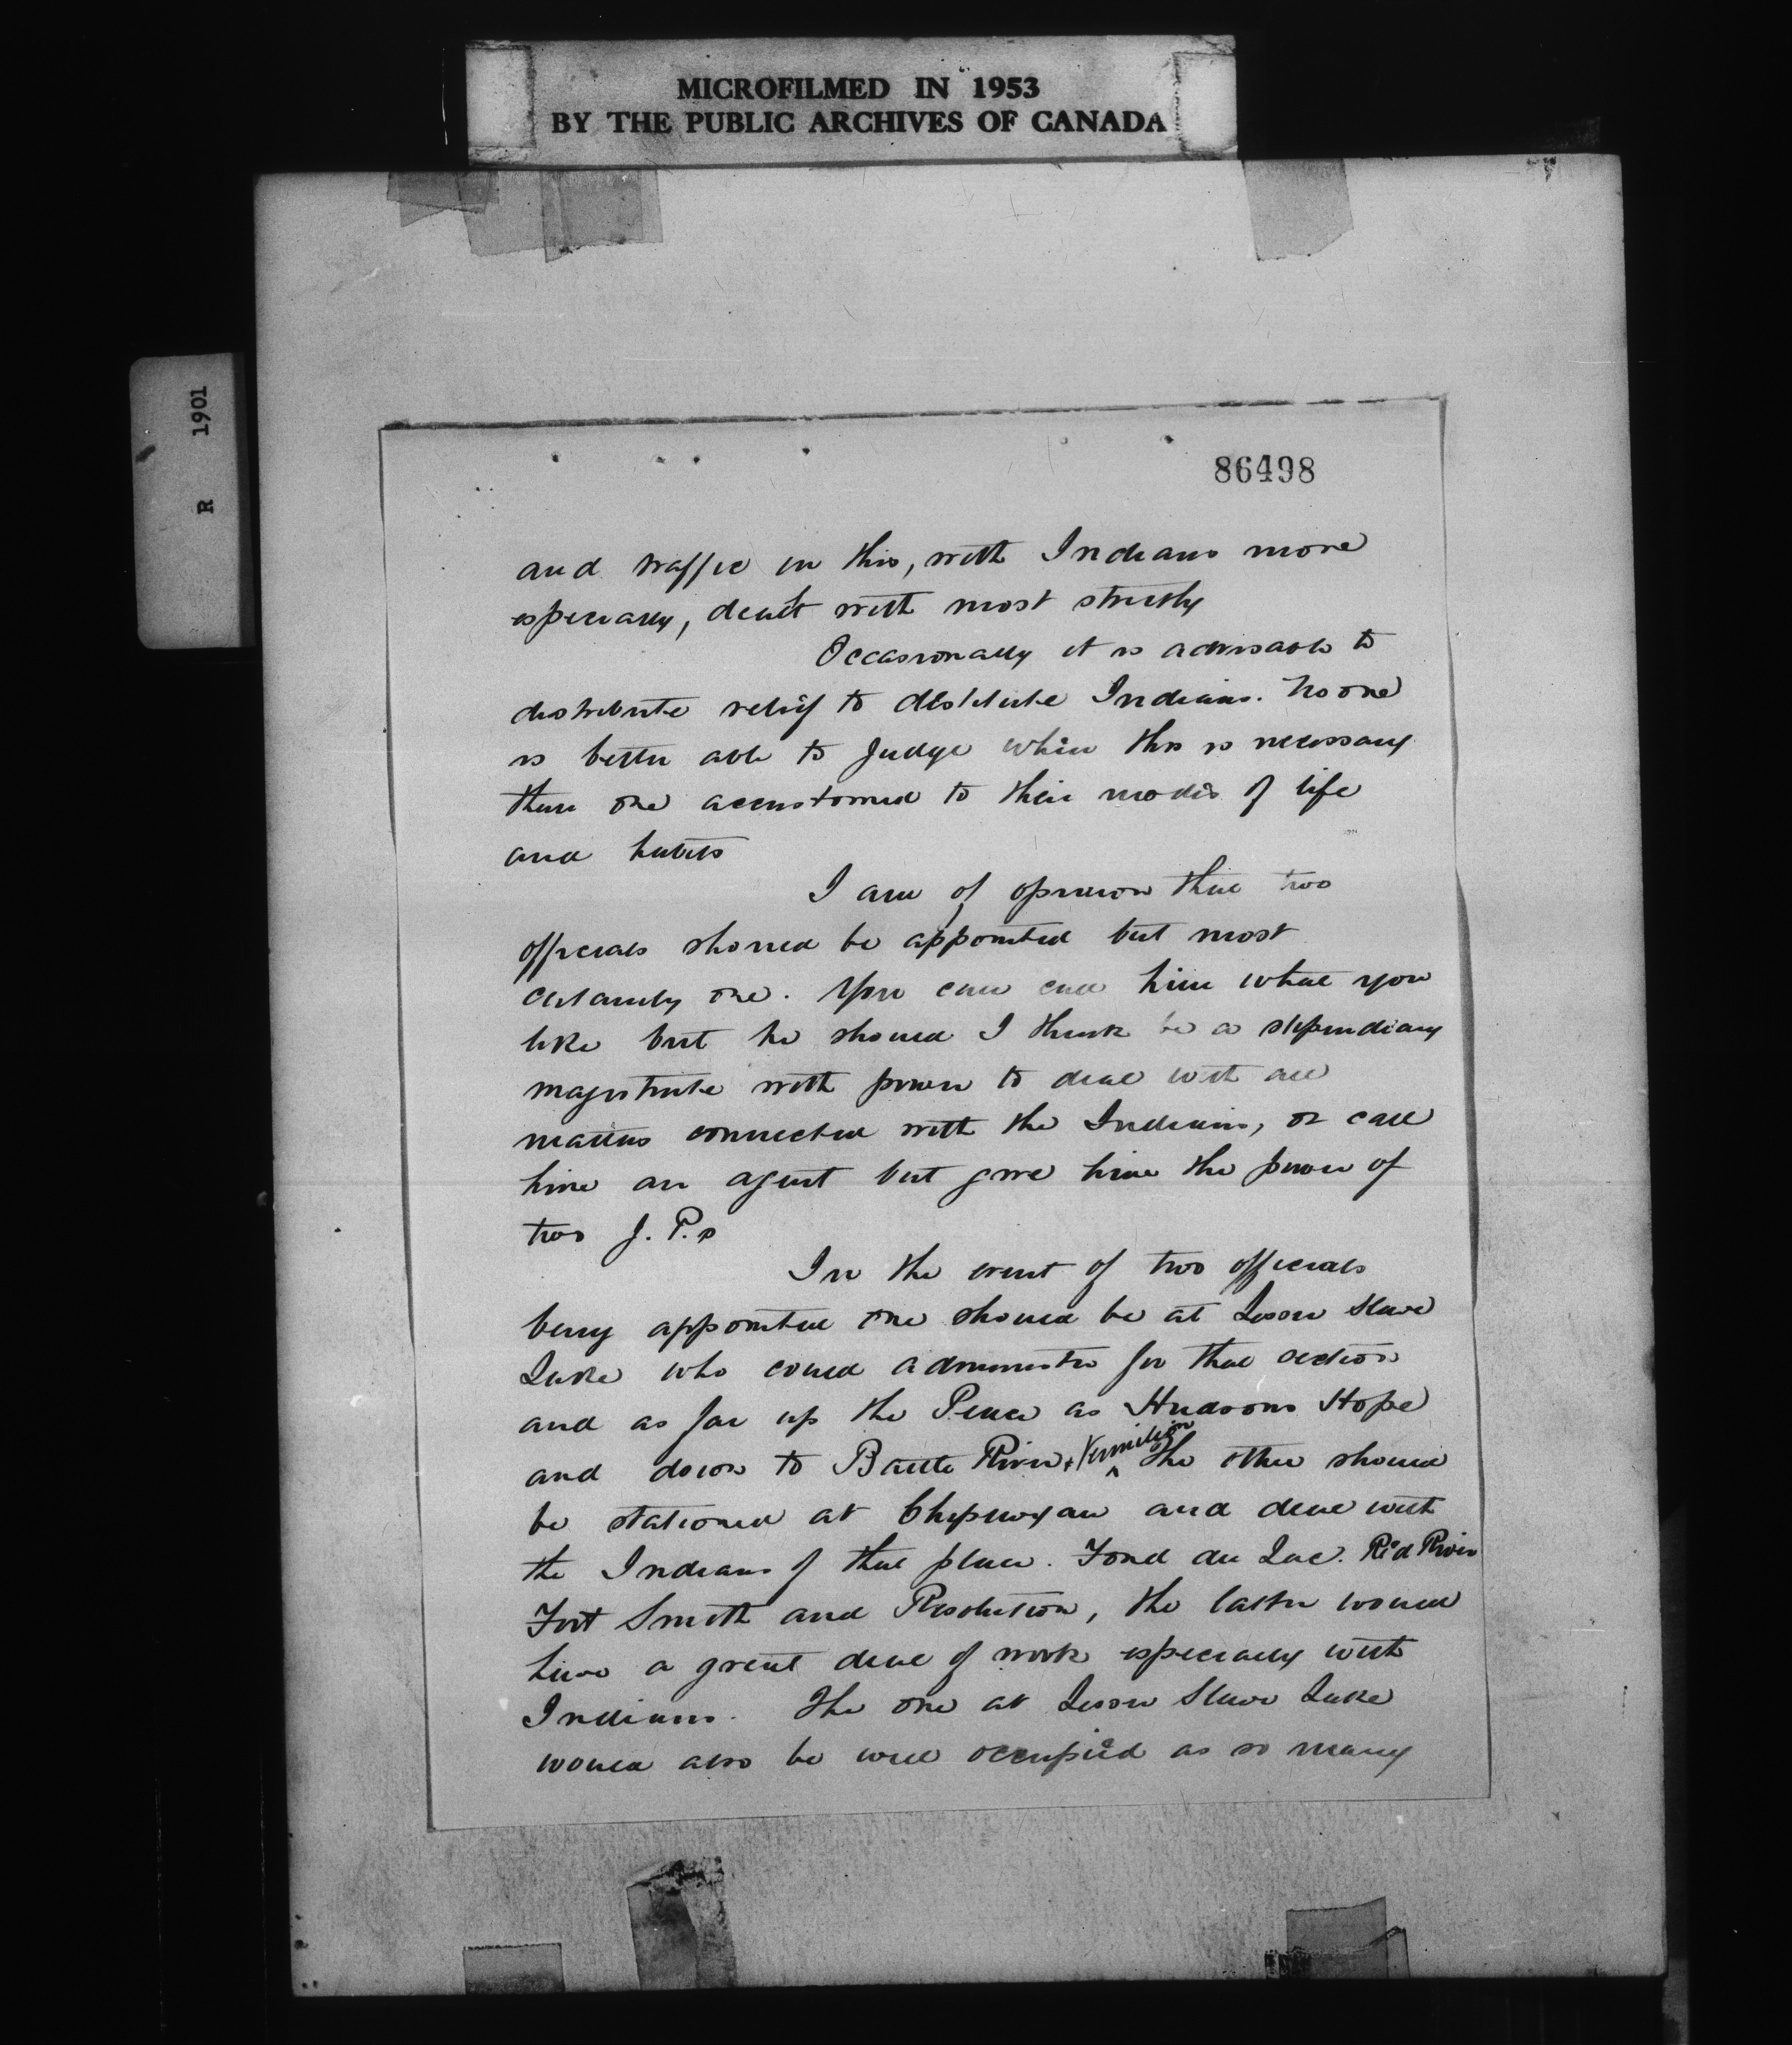 MICROFILMED IN 1953
BY THE PUBLIC ARCHIVES OF CANADA
R 1901
86498
and traffic in this, with Indians more
especially, dealt with most strictly
Occasionally it is advisable to
distribute relief to destitute Indians. No one
is better able to judge when this is necessary
than one accustomed to their modes of life
and habits
I am of opinion that two
officials should be appointed but most
certainly one. You can call him what you
like but he should I think be a stipendiary
magistrate with power to deal with all
matters connected with the Indians, or call
him an agent but give him the power of
two J.P.s
In the event of two officials
being appointed one should be at Lesser Slave
Lake who could administer for that section
and as far up the Peace as Hudsons Hope
and down to Battle River & Vermilion The other should
be stationed at Chipewyan and deal with
the Indians of that place. Fond du Lac. Red River
Fort Smith and Resolution, the latter would
have a great deal of work especially with
Indians. The one at Lesser Slave Lake
would also be well occupied as so many